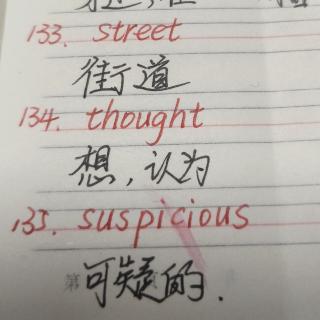 133. street
街道
134. thought
想,认为
135. suspicious
可疑的.